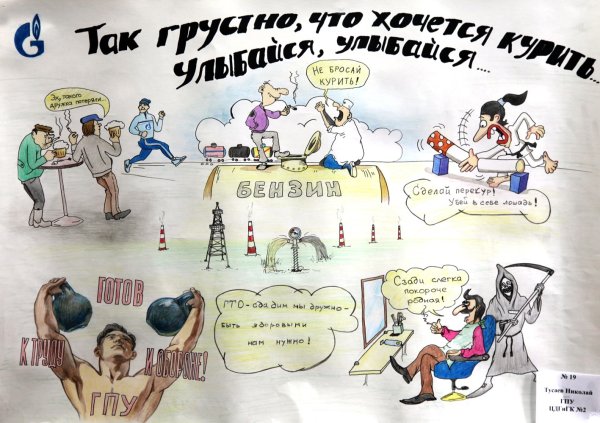 Так грустно, что хочется курить...
Улыбайся, улыбайся....
Эх, такого
дружка потеряли..
Не бросай
курить!
БЕНЗИН
Сделай перекур!
Убей в себе лошадь!
ГОТОВ
К ТРУДУ
И ОБОРОНЕ!
ГПУ
ГТО-сдадим мы дружно-
быть здоровыми
нам нужно!
Сзади слегка
покороче
родная!
№ 19
Тусаев Николай
ГПУ